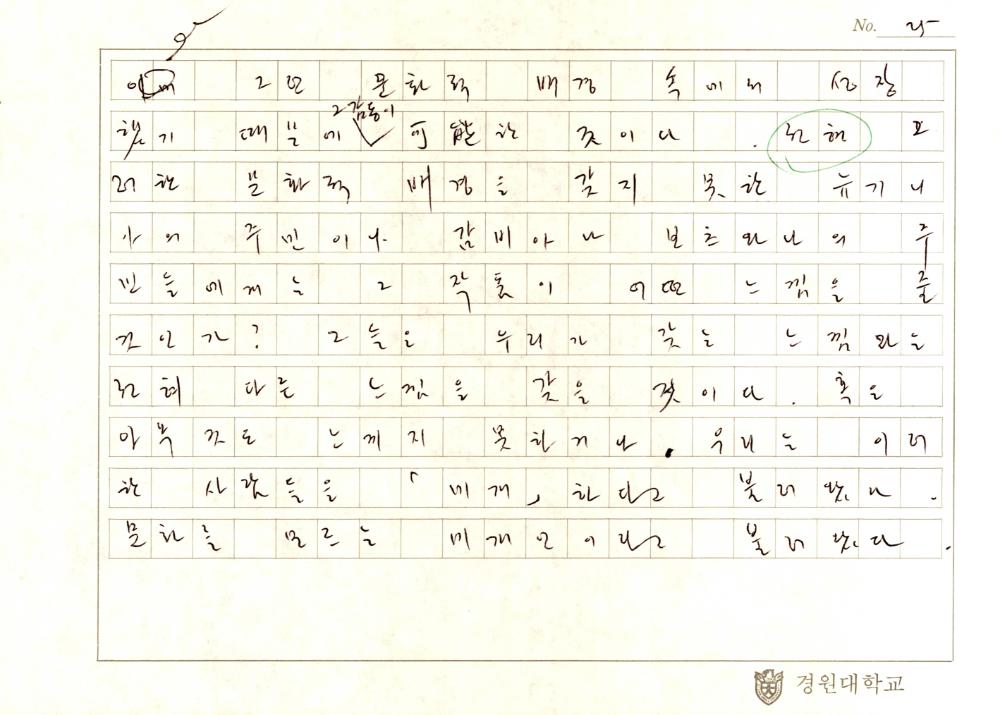 No. 25
그런 문화적 배경 속에서 성장
했기 때문에 그 감동이 可能한 것이다. 전혀 그
러한 문화적 배경을 갖지 못한 뉴기니
아의 주민이나 감비아나 보츠와나의 주
민들에게는 그 작품이 어떤 느낌을 줄
것인가? 그들은 우리가 갖는 느낌과는
전혀 다른 느낌을 갖을 것이다. 혹은
아무것도 느끼지 못하거나. 우리는 이러
한 사람들을 「미개」하다고 불러 왔다.
문화를 모르는 미개인이라고 불러 왔다.
경원대학교